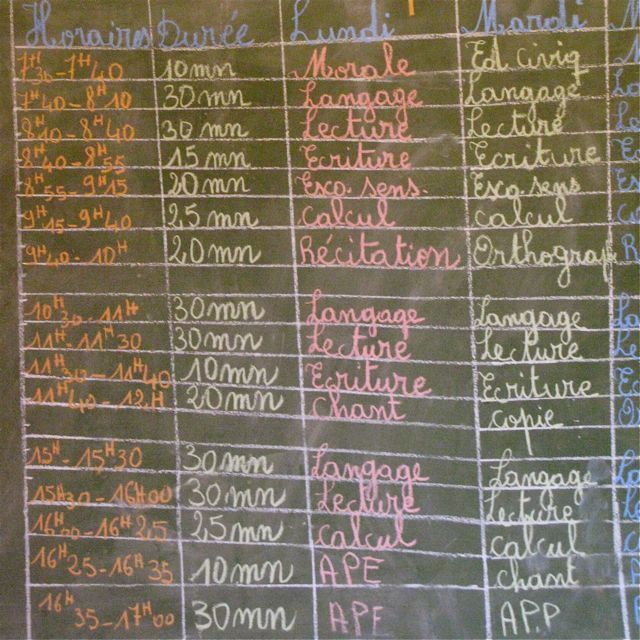 Horaires Durée Lundi Mardi
7H30-7H40 10mn Morale Ed. Civiq
7H40-8H10 30mn Langage Langage
8H10-8H40 30mn Lecture Lecture
8H40-8H55 15mn Ecriture Ecriture
8H55-9H15 20mn Exo. sens. Exo. sens
9H15-9H40 25mn Calcul Calcul
9H40-10H 20mn Récitation Orthograp
10H30-11H 30mn Langage Langage
11H-11H30 30mn Lecture Lecture
11H30-11H40 10mn Ecriture Ecriture
11H40-12H 20mn Chant copie
15H-15H30 30mn Langage Langage
15H30-16H00 30mn Lecture Lecture
16H00-16H25 25mn Calcul Calcul
16H25-16H35 10mn APE chant
16H35-17H00 30mn APE APP